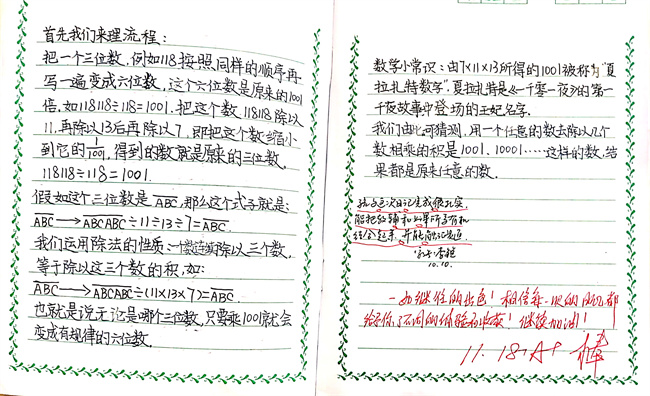 首先我们来理流程：
把一个三位数，例如118按照同样的顺序再
写一遍变成六位数，这个六位数是原来的1001
倍，如118118÷118=1001.把这个数118118除以
11，再除以13后再除以7，即把这个数缩小
到它的1/1001，得到的数就是原来的三位数.
118118÷118=1001.
假如这个三位数是ABC，那么这个式子就是：
ABC→ABCABC÷11÷13÷7=ABC.
我们运用除法的性质：一个数连续除以三个数，
等于除以这三个数的积，如：
ABC→ABCABC÷(11×13×7)=ABC.
也就是说无论是哪个三位数，只要乘1001就会
变成有规律的六位数.
数学小常识：由7×11×13所得的1001被称为“夏
拉扎特数字”.夏拉扎特是《一千零一夜》的第一
千夜故事中登场的王妃名字.
我们由此可猜测，用一个任意的数去除以几个
数相乘的积是1001、10001……这样的数，结
果都是原来任意的数.
10.10.
一如继往的出色！相信每一次的日记都
给你了不同的体验和收获！继续加油！
11.18.A+